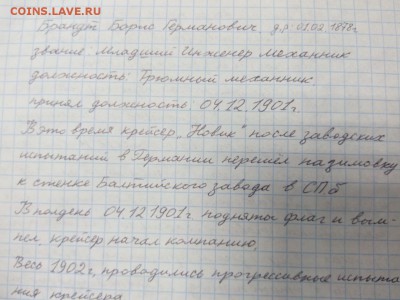 COINS.LAVE.RU
Брапут Борис Германович. д.р. 01.02.1878г
звание: Младший Инженер механник
должность: Трюмный механник
принял должность: 04.12.1901г.
В это время крейсер "Новик" после заводских
испытаний в Германии перешел на зимовку
к стенке Балтийского завода в СПб
В полдень 04.12.1901г. подняты флаг и вым-
пел, крейсер начал компанию.
Весь 1902г, проводились прогрессивные испыта-
ния крейсера